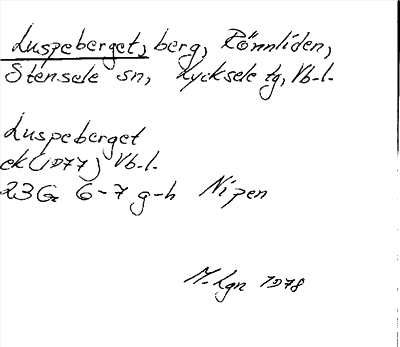 Luspeberget, berg, Rönnliden,
Stensele sn, Lycksele tg, Vb-l.
Luspeberget
ek (1977) Vb-l.
23G 6-7 g-h Nipen
M-lgn 1978